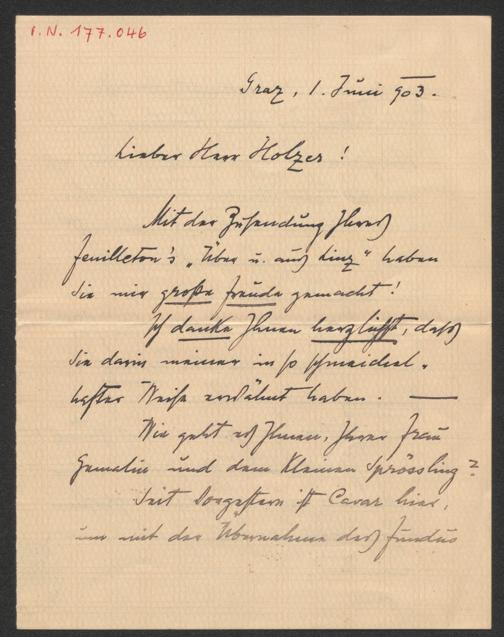 I.N. 177.046
Graz, 1. Juni 903.
Lieber Herr Holzer!
Mit der Zusendung Ihres
Feuilleton's „Über u. aus Linz" haben
Sie mir große Freude gemacht!
Ich danke Ihnen herzlichst, daß
Sie darin meiner in so schmeichel-
hafter Weise erwähnt haben. —
Wie geht es Ihnen, Ihrer Frau
Gemalin und dem kleinen Sprössling?
Seit vorgestern ist Cavar hier,
um mit der Übernahme des Fundus